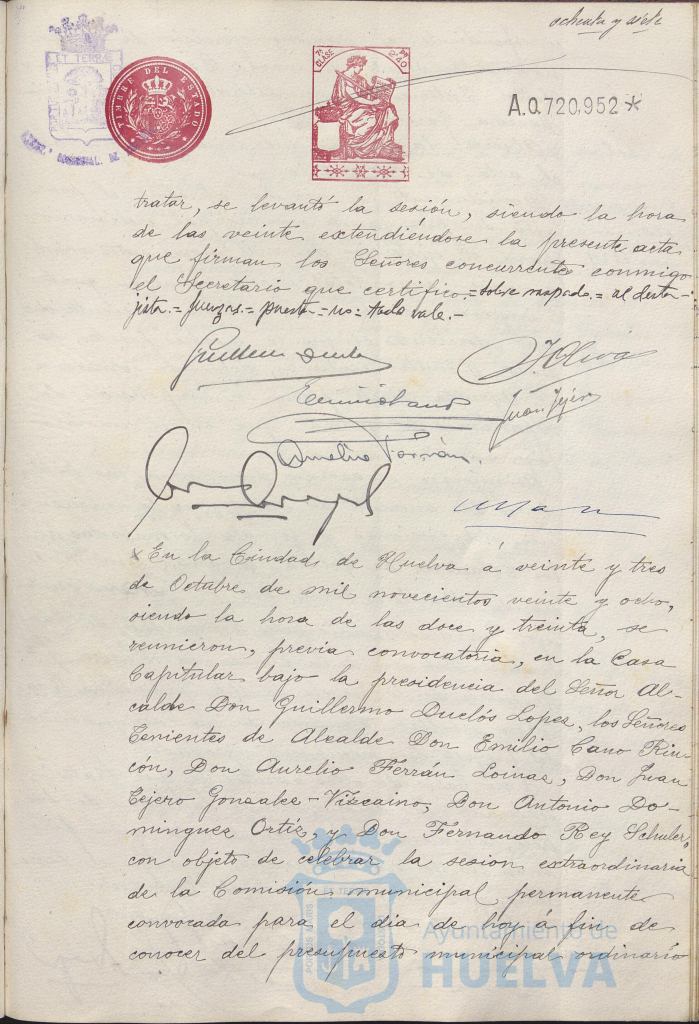 ochenta y siete
ET TERRA
TIMBRE DEL ESTADO
7ª CLASE
A.0.720,952 *
tratar, se levantó la sesión, siendo la hora
de las veinte extendiéndose la presente acta
que firman los Señores concurrentes conmigo
el Secretario que certifico.=sobre raspado.=
=puesto=no=todo vale.-
J. Oliva
Juan Tejero
Aurelio Ferrán.
x En la Ciudad de Huelva á veinte y tres
de Octubre de mil novecientos veinte y ocho,
siendo la hora de las doce y treinta, se
reunieron, previa convocatoria, en la Casa
Capitular bajo la presidencia del Señor Al-
calde Don Guillermo Duclós Lopez, los Señores
Tenientes de Alcalde Don Emilio Cano Rin-
cón, Don Aurelio Ferrán Loinaz, Don Juan
Tejero Gonzalez-Vizcaino, Don Antonio Do-
minguez Ortíz, y Don Fernando Rey Schuler,
con objeto de celebrar la sesion extraordinaria
de la Comisión municipal permanente
convocada para el dia de hoy á fin de
conocer del presupuesto municipal ordinario
Ayuntamiento de
HUELVA